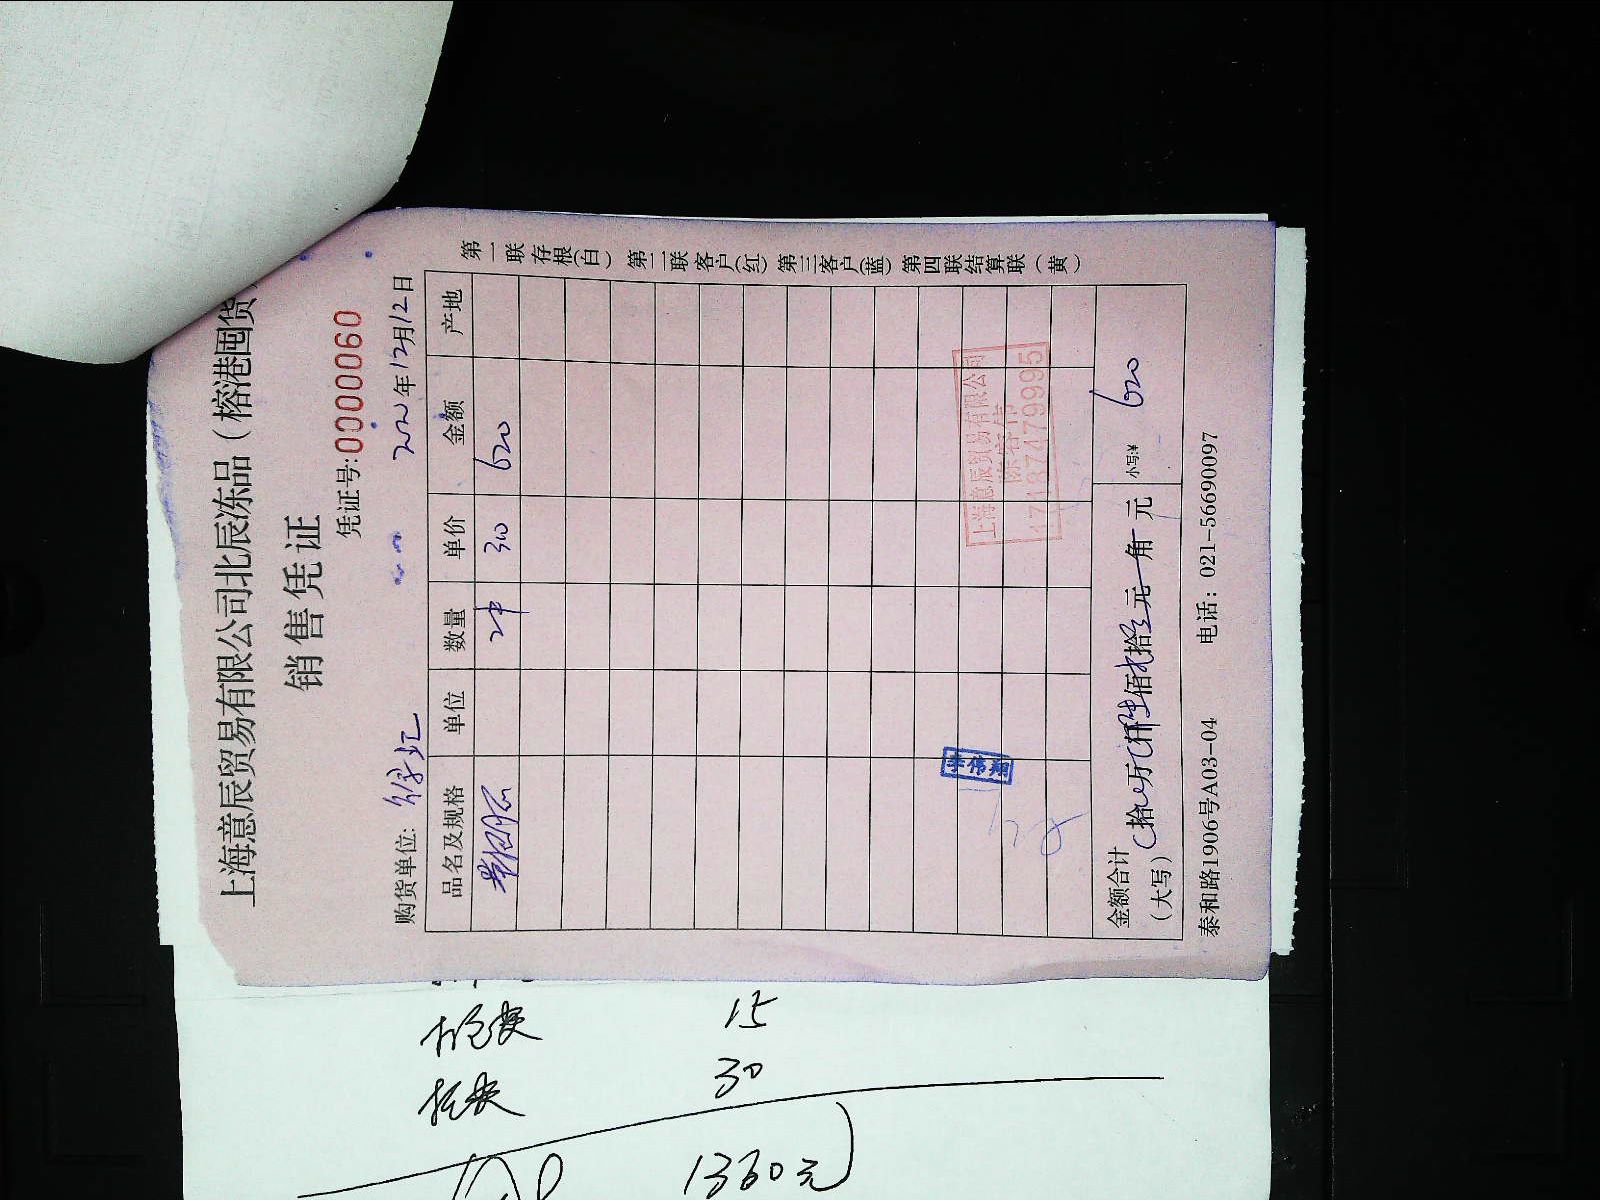 上海意辰贸易有限公司北辰冻品（榕港囤货
销售凭证
凭证号:0000060
购货单位: 徐汇 2022年12月12日
品名及规格 单位 数量 单价 金额 产地
2件 310 620
上海意辰贸易有限公司
李伟翔
金额合计（大写） 拾 万 仟 佰 拾 元 角 元 小写:¥ 620
泰和路1906号A03-04 电话: 021-56690097
第一联存根(白) 第二联客户(红) 第三客户(蓝) 第四联结算联(黄)
15
30
1360元